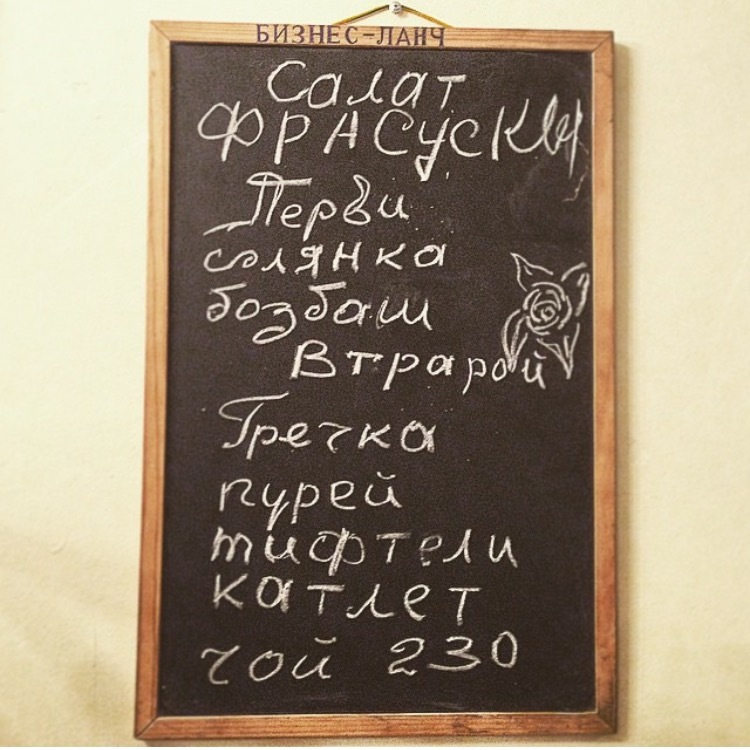 БИЗНЕС-ЛАНЧ
Салат
ФРАСУСКЫ
Перви
солянка
бозбаш
Втрарой
Гречка
пурей
тифтели
катлет
чой 230